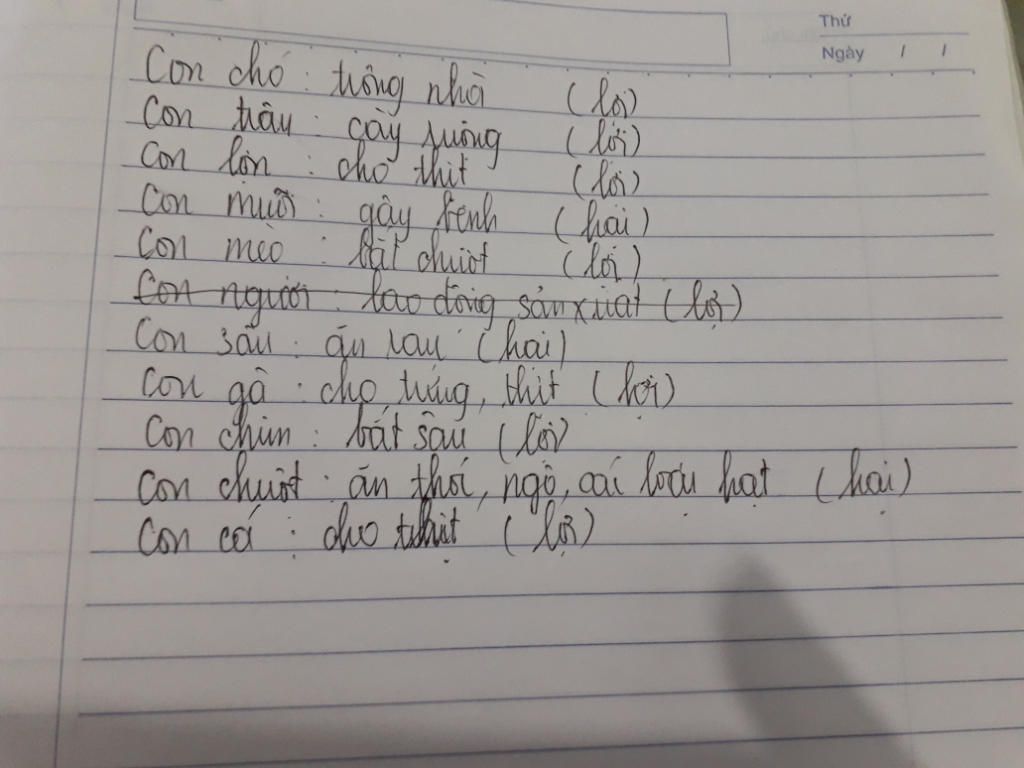 Thứ
Ngày / /
Con chó : trông nhà (lợi)
Con trâu : cày ruộng (lợi)
Con lợn : cho thịt (lợi)
Con muỗi : gây bệnh (hại)
Con mèo : bắt chuột (lợi)
Con người : lao động sản xuất (lợi)
Con sâu : ăn rau (hại)
Con gà : cho trứng, thịt (lợi)
Con chim : bắt sâu (lợi)
Con chuột : ăn thóc, ngô, các loại hạt (hại)
Con cá : cho thịt (lợi)